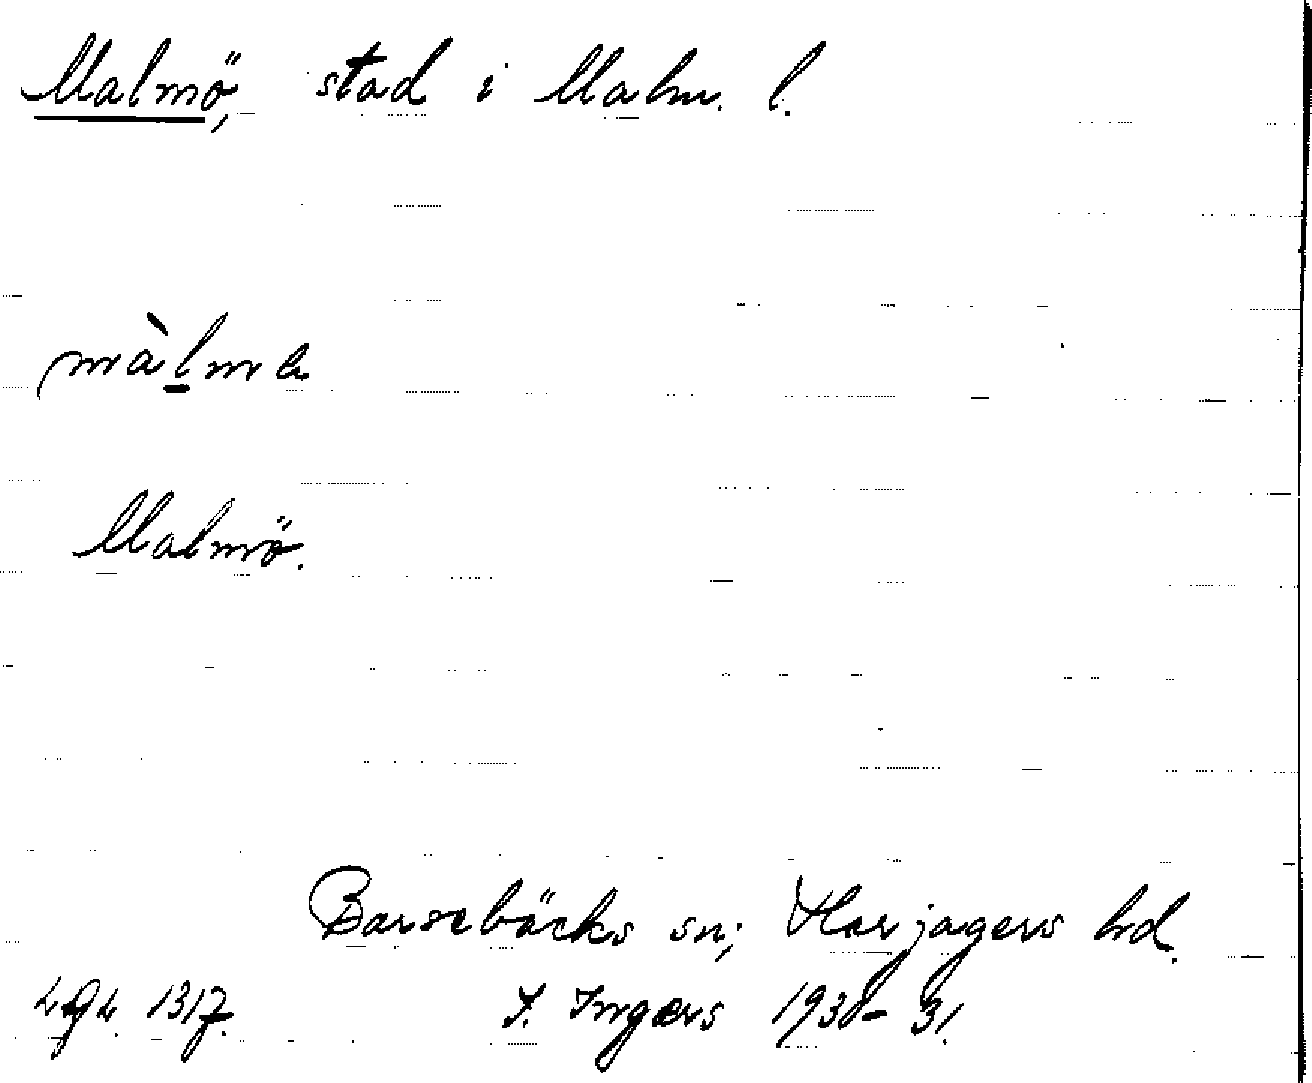 Malmö, stad i Malm. l.
màlmө
Malmö.
Barsebäcks sn; Harjagers hd.
Lgk. 1317. I. Ingers 1930-31.